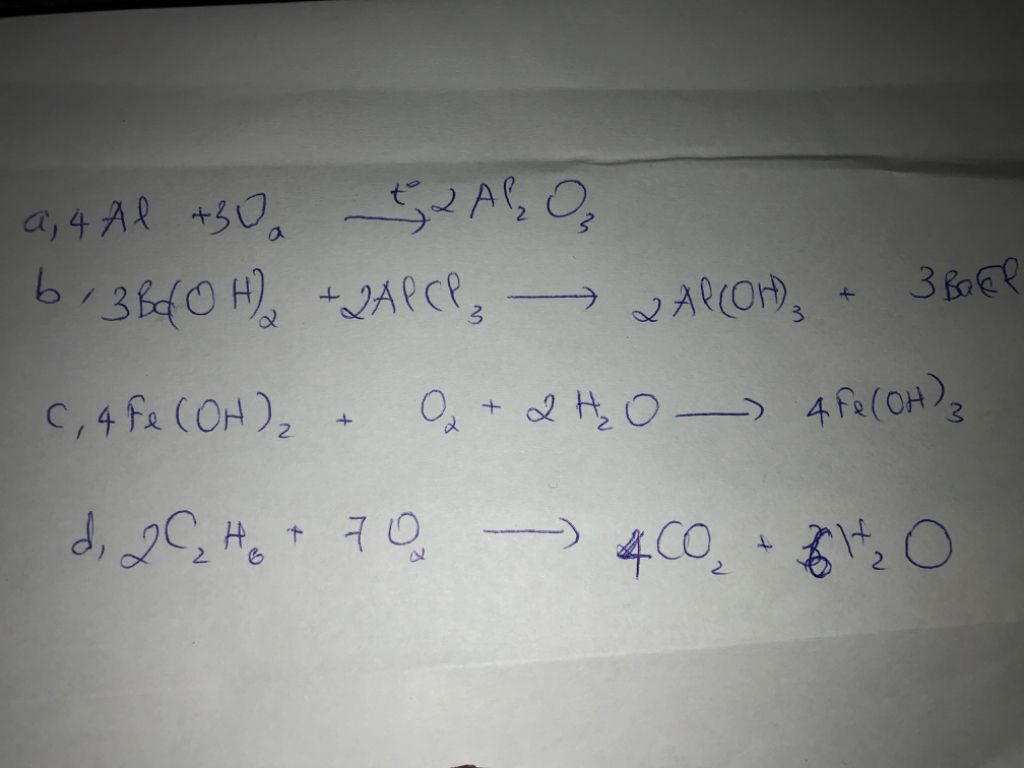 a, 4 Al + 3O₂ →t° 2 Al₂O₃
b, 3Ba(OH)₂ + 2AlCl₃ → 2 Al(OH)₃ + 3 BaCl
c, 4 Fe(OH)₂ + O₂ + 2 H₂O → 4 Fe(OH)₃
d, 2C₂H₆ + 7 O₂ → 4CO₂ + 6H₂O